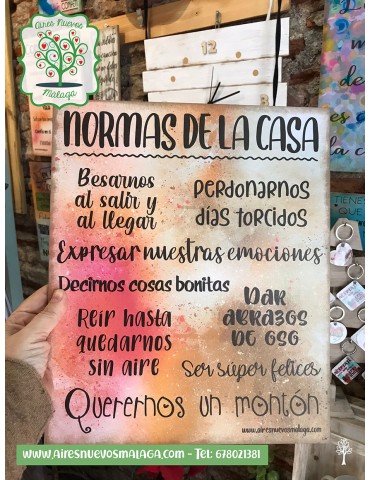 Aires Nuevos
Málaga
12
NORMAS DE LA CASA
Besarnos
al salir y
al llegar
perdonarnos
días torcidos
Expresar nuestras emociones
Decirnos cosas bonitas
Reír hasta
quedarnos
sin aire
DAR
ABRAZOS
DE OSO
Ser súper felices
Querernos un montón
www.airesnuevosmalaga.com
www.airesnuevosmalaga.com - Tel: 678021381
TIENES
QUE